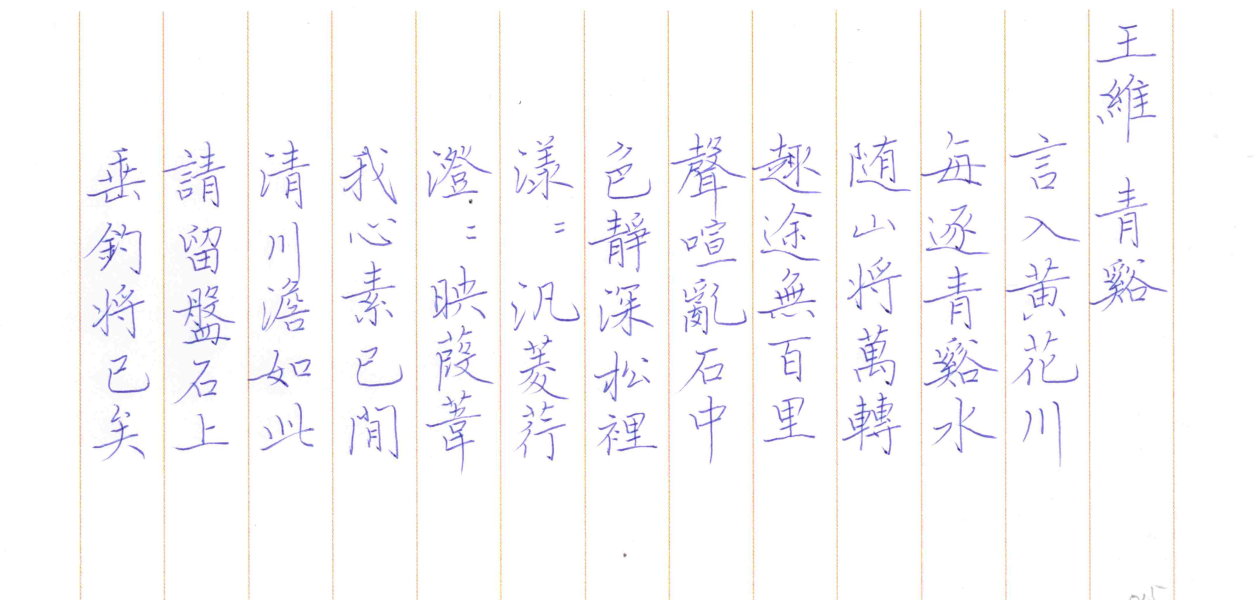 王維 青谿
言入黃花川
每逐青谿水
随山將萬轉
趣途無百里
聲喧亂石中
色靜深松裡
漾〻汎菱荇
澄〻映葭葦
我心素已閒
清川澹如此
請留盤石上
垂釣將已矣